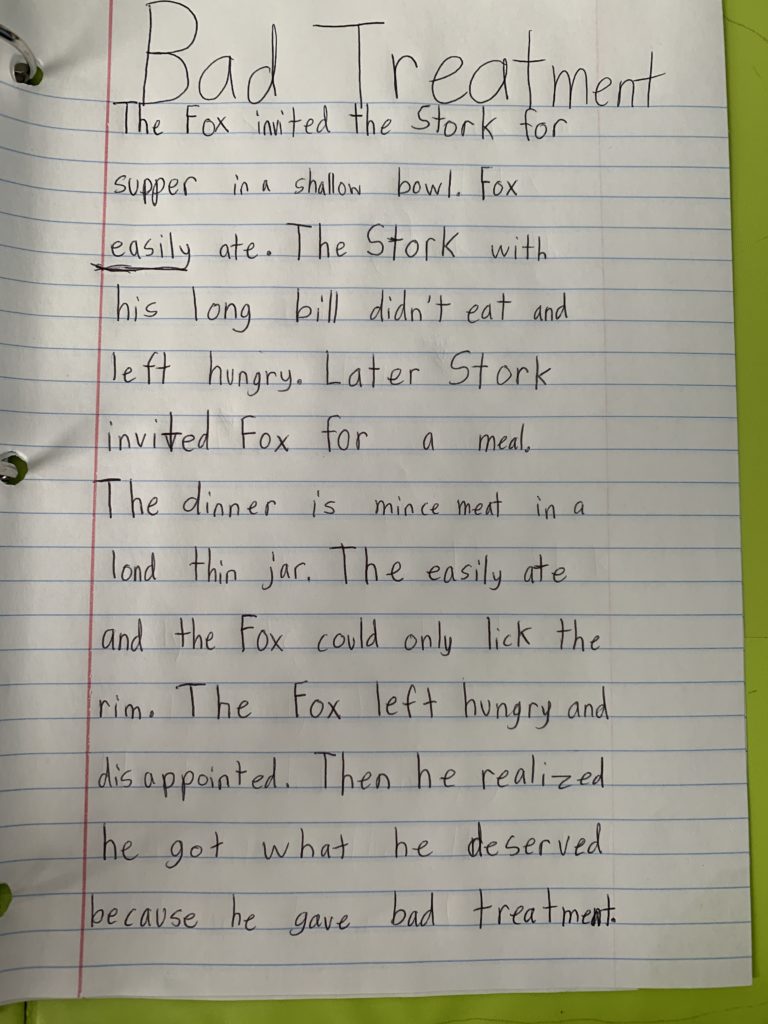 Bad Treatment
The Fox invited the Stork for
supper in a shallow bowl. Fox
easily ate. The Stork with
his long bill didn't eat and
left hungry. Later Stork
invited Fox for a meal.
The dinner is mince meat in a
lond thin jar. The easily ate
and the Fox could only lick the
rim. The Fox left hungry and
disappointed. Then he realized
he got what he deserved
because he gave bad treatment.